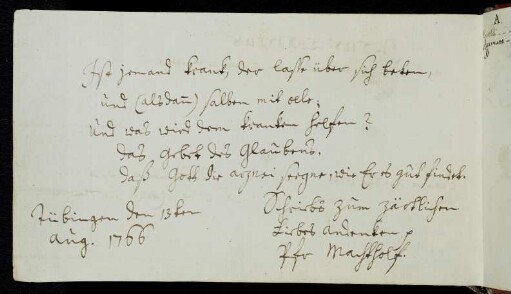 Ist jemand krank, der lasse über sich beten,
und (alsdann) salben mit oele;
Und was wird dem kranken helfen?
das gebet des Glaubens.
daß Gott die arznei segne, wie Er es gut findet.
Tübingen den 13ten
aug. 1766
Schriebs zum zärtlichen
Liebes andenken
Pfr Machtholf.
A.